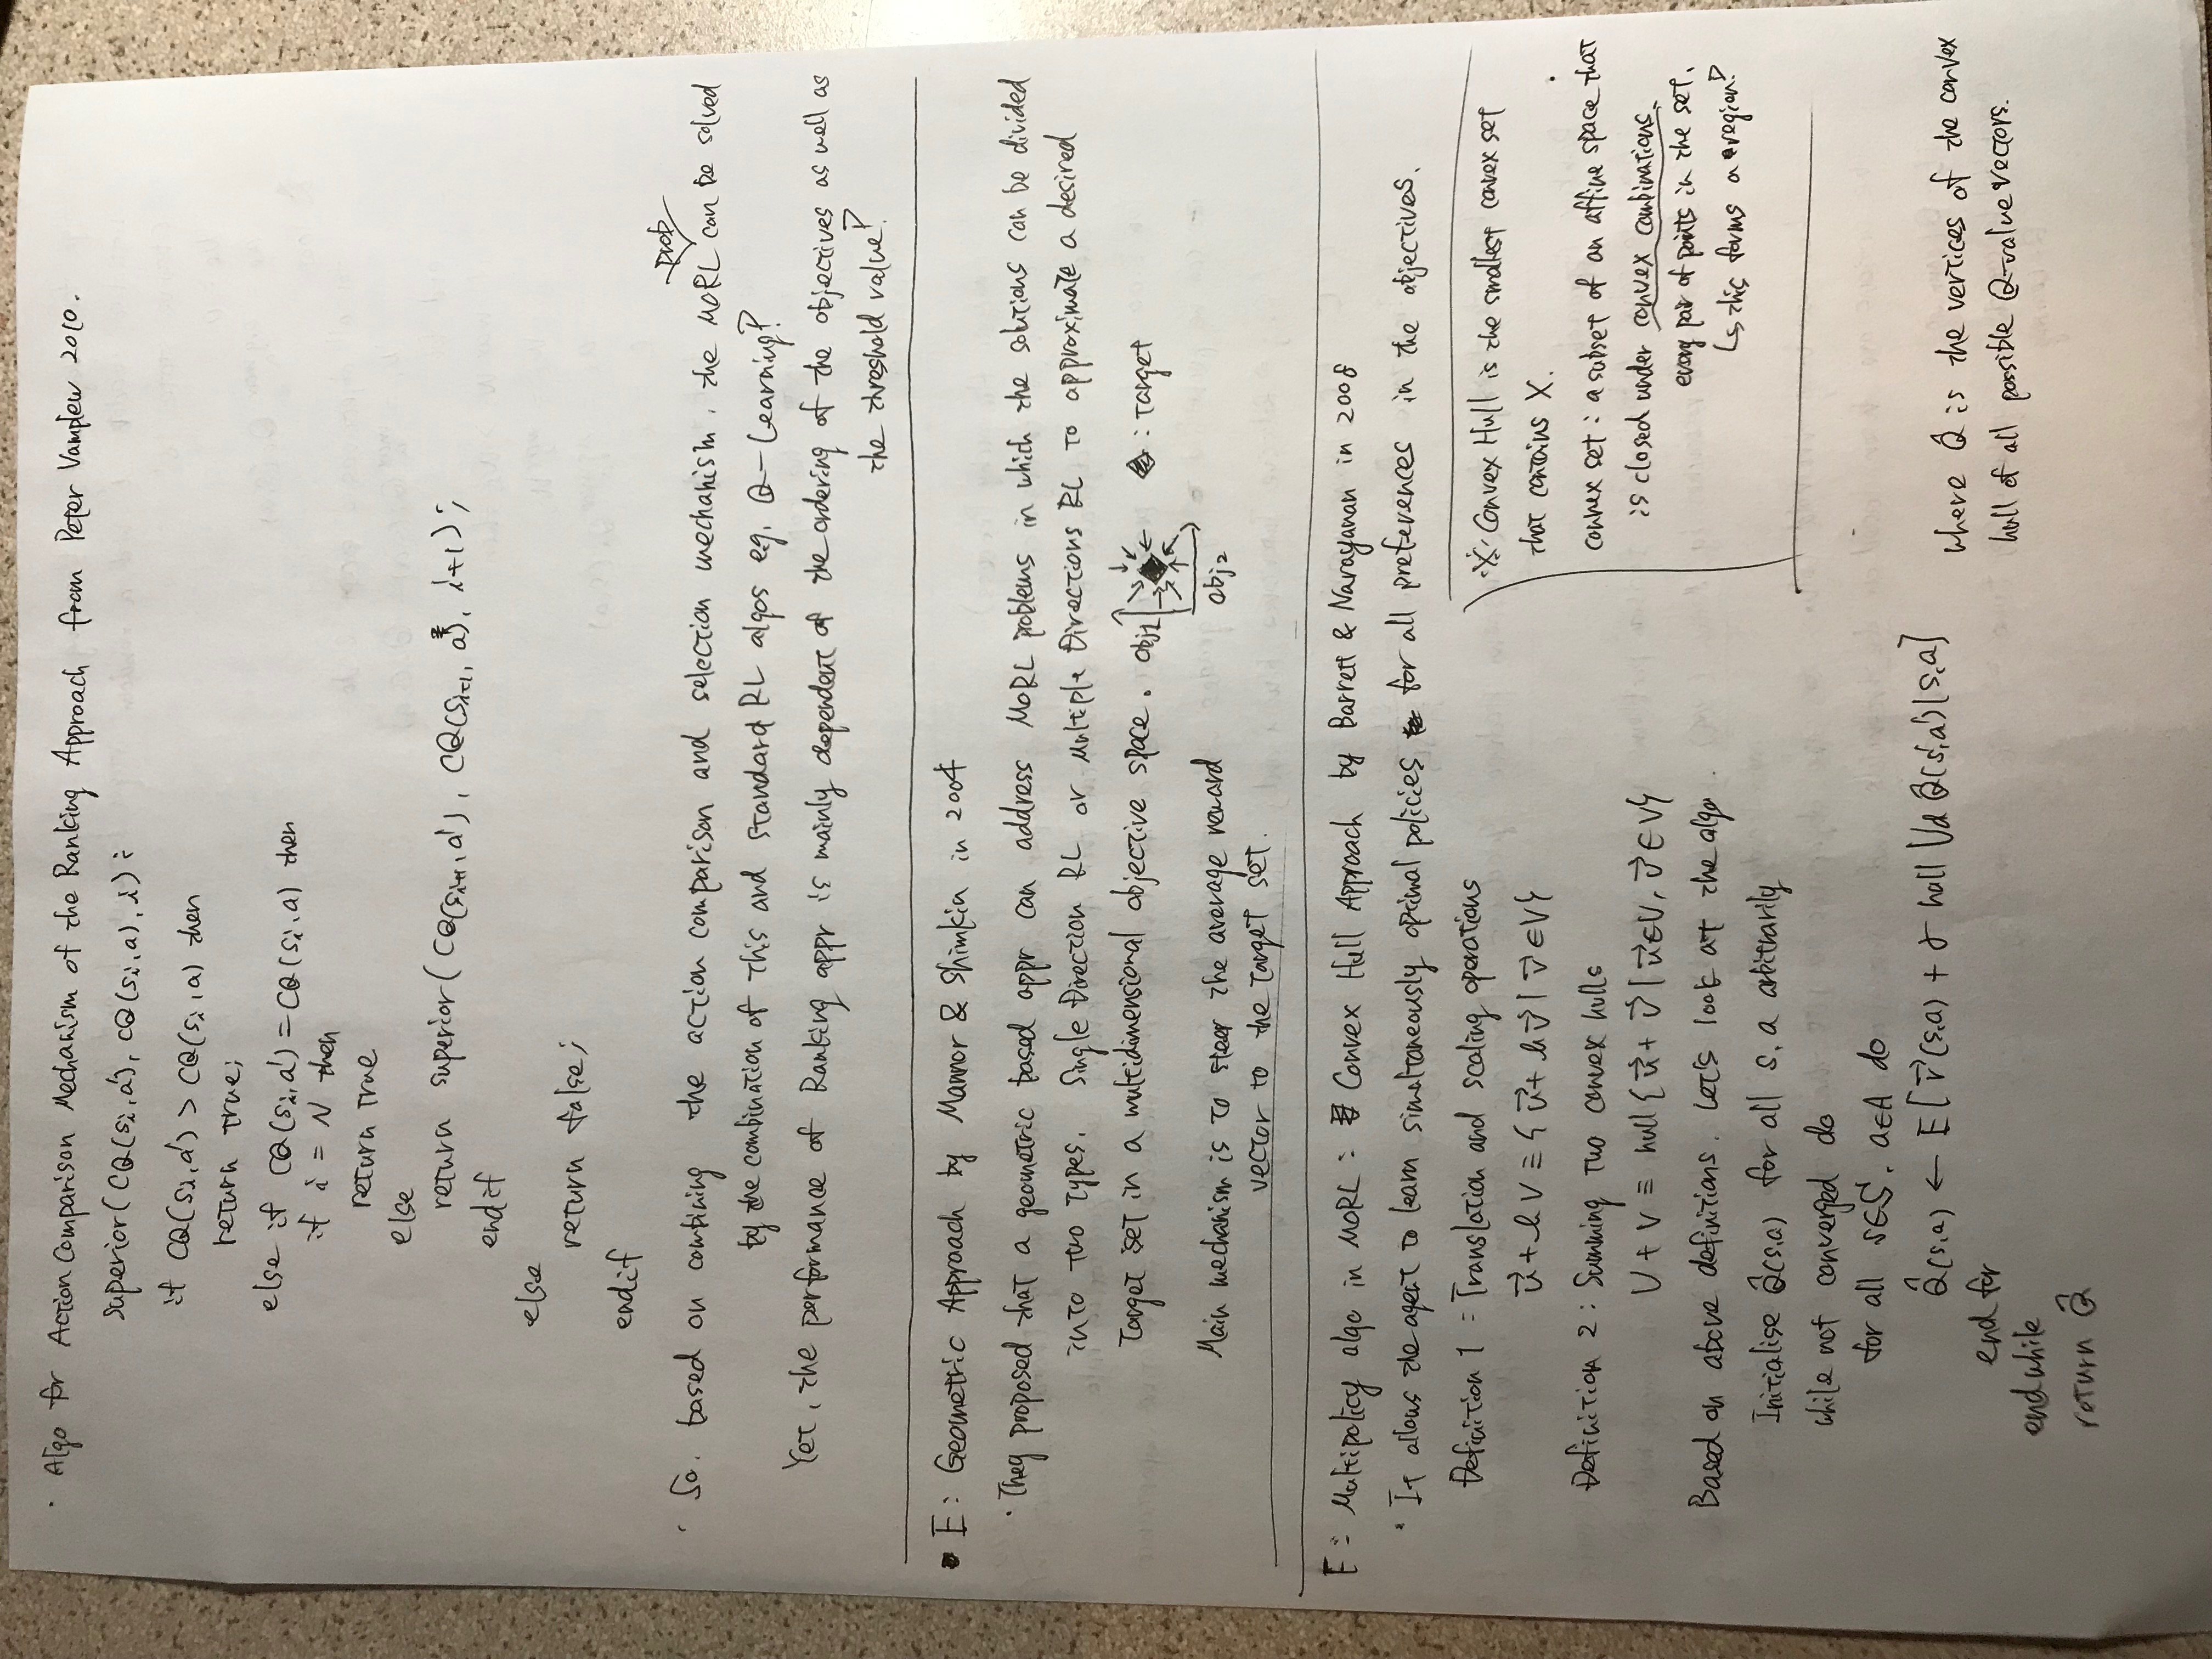 · Algo for Action Comparison Mechanism of the Ranking Approach from Peter Vamplew 2010.
superior( CQ(si,a'), CQ(si,a), i) :
if CQ(si,a') > CQ(si,a) then
return true;
else if CQ(si,a') = CQ(si,a) then
if i = N then
return true
else
return superior( CQ(si+1,a'), CQ(si+1, a), i+1) ;
endif
else
return false;
endif
prob
· So, based on combining the action comparison and selection mechanism, the MORL can be solved
by the combination of this and standard RL algos e.g. Q-Learning?
Yet, the performance of Ranking appr is mainly dependent of the ordering of the objectives as well as
the threshold value?
• E: Geometric Approach by Mannor & Shimkin in 2004
· They proposed that a geometric based appr can address MORL problems in which the solutions can be divided
into two types. Single Direction RL or Multiple Directions RL to approximate a desired
target set in a multidimensional objective space.
obj1
: Target
obj2
Main mechanism is to steer the average reward
vector to the target set.
E: Multipolicy algo in MORL : Convex Hull Approach by Barrett & Narayanan in 2008
· It allows the agent to learn simultaneously optimal policies for all preferences in the objectives.
Definition 1 : Translation and scaling operations
u⃗ + bV ≡ { u⃗ + bv⃗ | v⃗ ∈ V}
Definition 2 : Summing two convex hulls
U + V ≡ hull { u⃗ + v⃗ | u⃗ ∈ U, v⃗ ∈ V}
※ Convex Hull is the smallest convex set
that contains X.
convex set : a subset of an affine space that
is closed under convex combinations.
every pair of points in the set.
↳ this forms a region?
Based on above definitions. Let's look at the algo.
Initialise Q̂(s,a) for all s, a arbitrarily
while not converged do
for all s∈S, a∈A do
Q̂(s,a) ← E[ r⃗(s,a) + γ hull ∪a' Q̂(s',a') | s,a]
end for
endwhile
return Q̂
where Q̂ is the vertices of the convex
hull of all possible Q-value vectors.